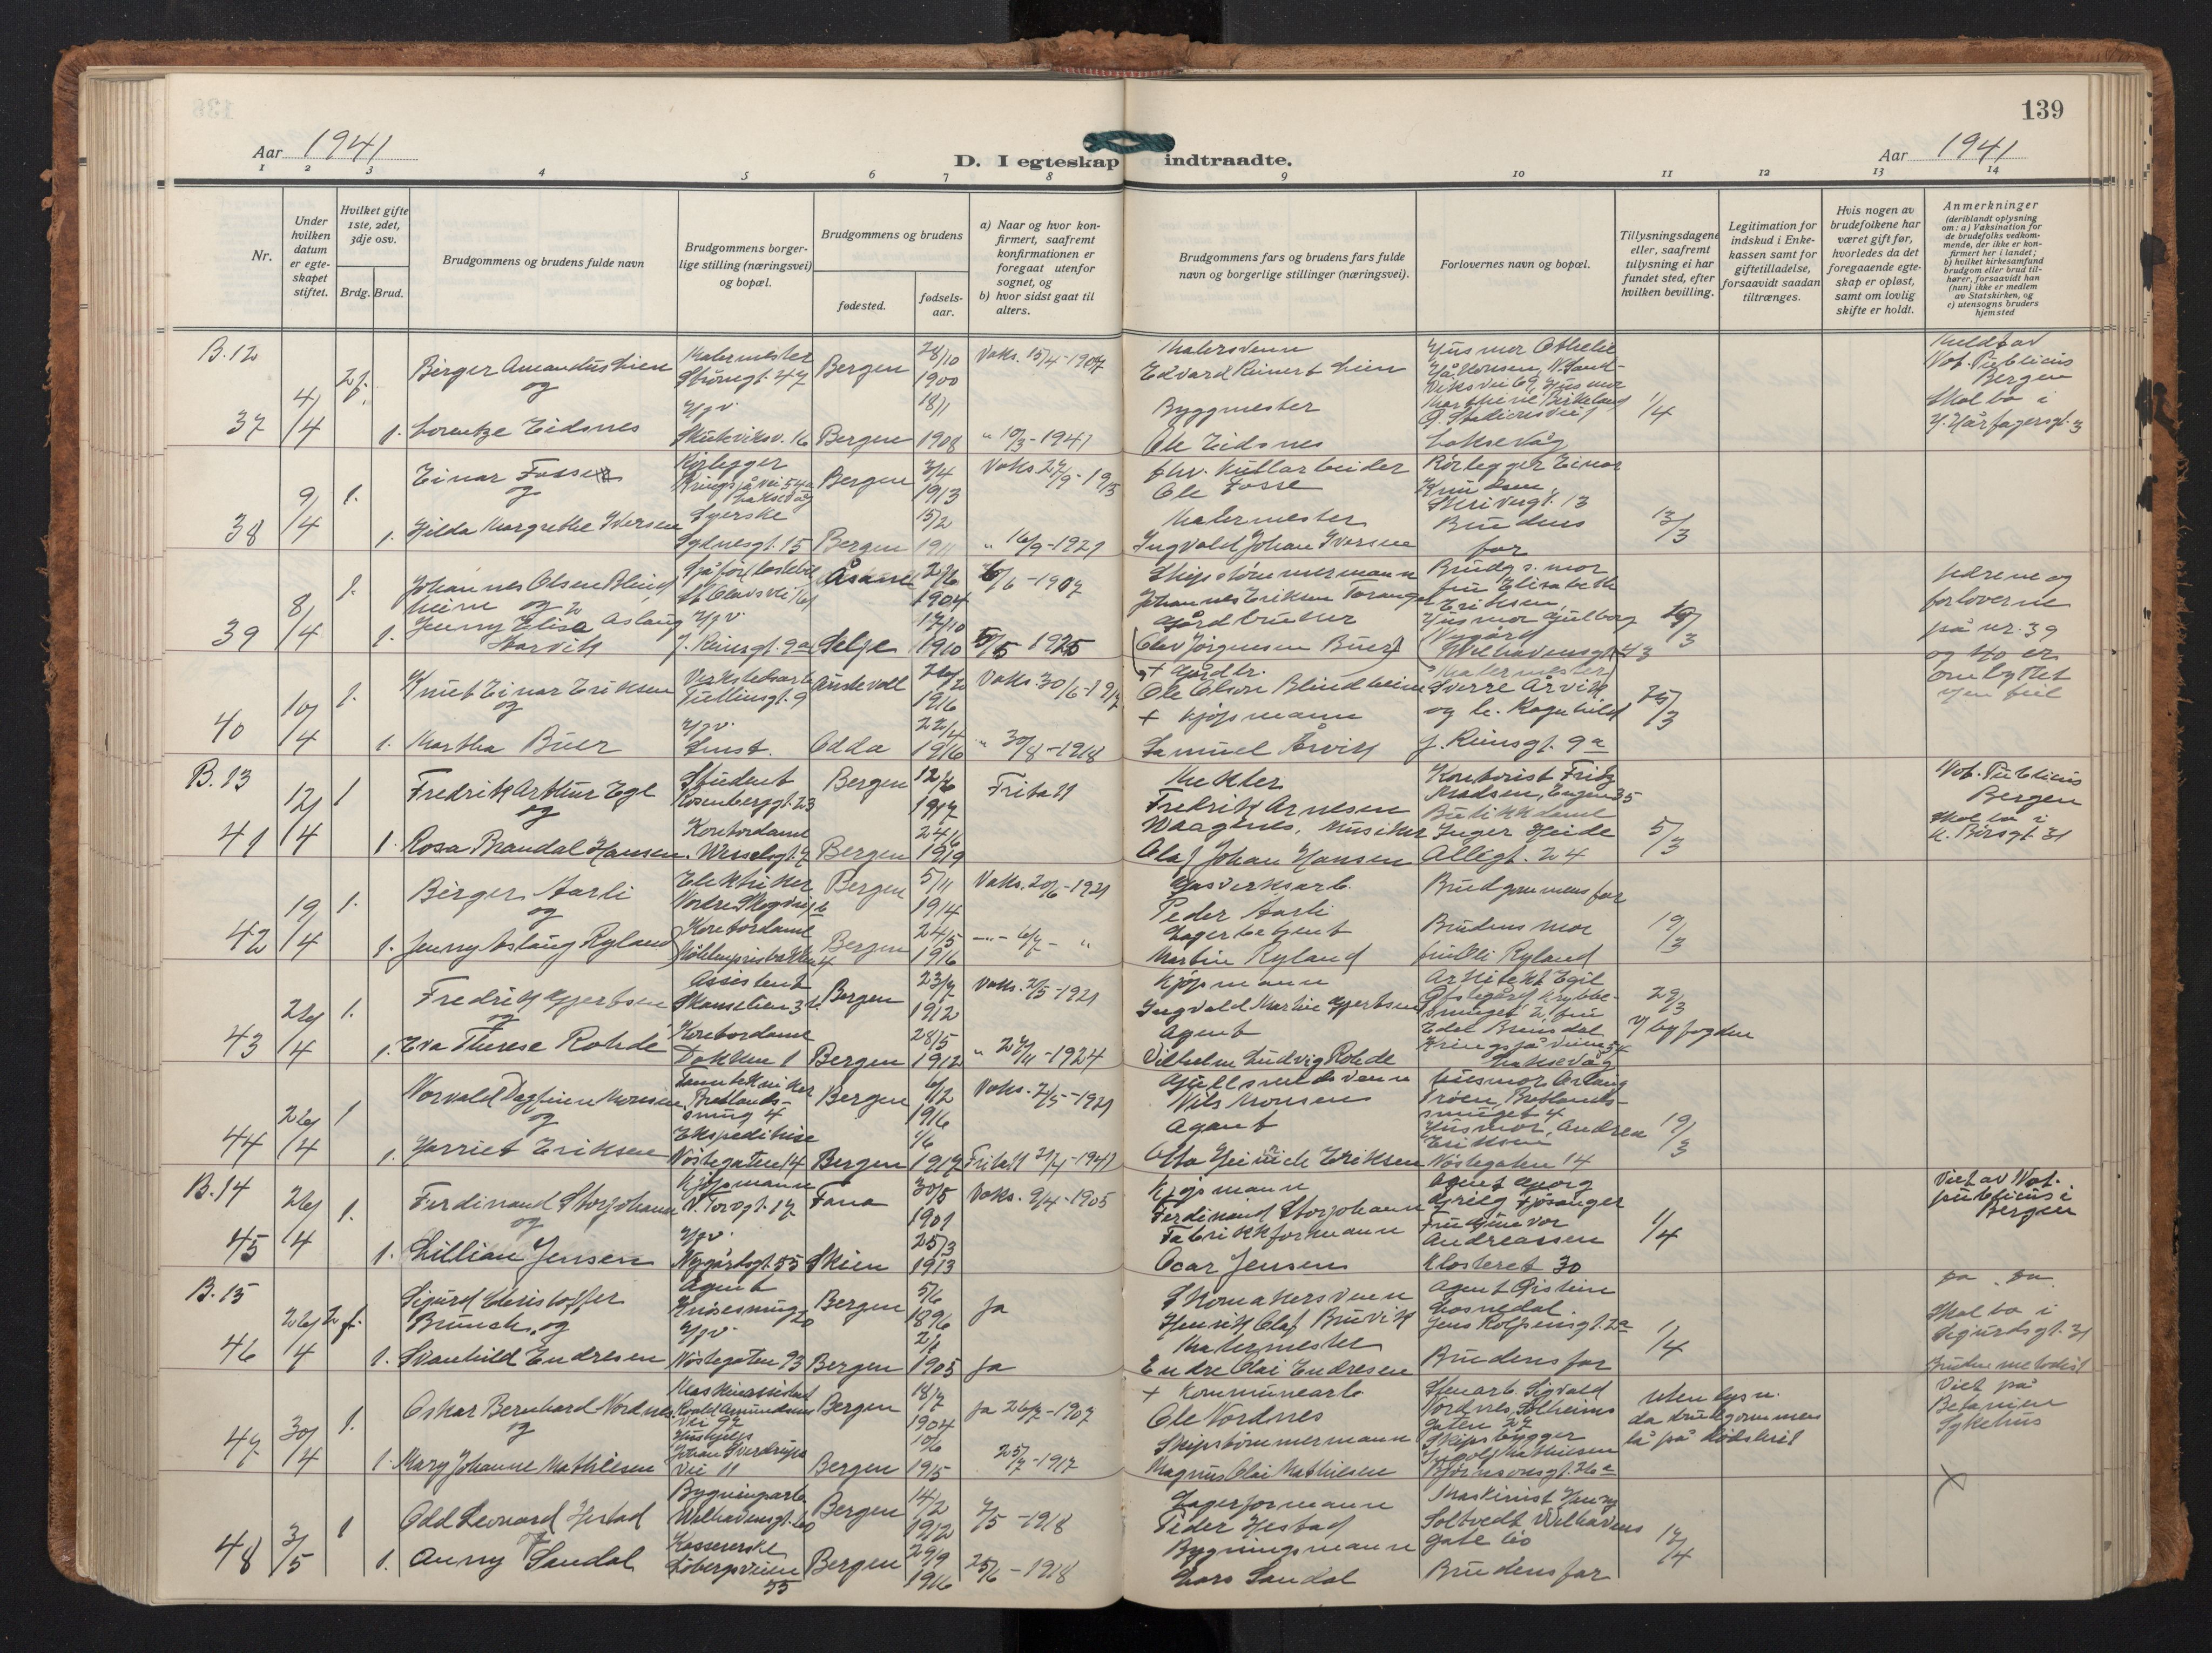 139
Aar 1941
D. I egteskap indtraadte.
Aar 1941
1 2 3 4 5 6 7 8 9 10 11 12 13 14
Nr.
Under hvilken datum er egteskapet stiftet.
Hvilket gifte 1ste, 2det, 3dje osv.
Brdg. Brud.
Brudgommens og brudens fulde navn
Brudgommens borgerlige stilling (næringsvei) og bopæl.
Brudgommens og brudens
fødested.
fødselsaar.
a) Naar og hvor konfirmert, saafremt konfirmationen er foregaat utenfor sognet, og
b) hvor sidst gaat til alters.
Brudgommens fars og brudens fars fulde navn og borgerlige stillinger (næringsvei).
Forlovernes navn og bopæl.
Tillysningsdagene eller, saafremt tillysning ei har fundet sted, efter hvilken bevilling.
Legitimation for indskud i Enkekassen samt for giftetilladelse, forsaavidt saadan tiltrænges.
Hvis nogen av brudefolkene har været gift før, hvorledes da det foregaaende egteskap er opløst, samt om lovlig skifte er holdt.
Anmerkninger
(deriblandt oplysning om: a) Vaksination for de brudefolks vedkommende, der ikke er konfirmert her i landet; b) hvilket kirkesamfund brudgom eller brud tilhører, forsaavidt han (hun) ikke er medlem av Statskirken, og c) utensogns bruders hjemsted
B.12
37 4/4 2 f.
Birger Amandus Lien
og
1. Lorentze Eidsnes
Malermester
Strömgt. 47
Hgv.
Skuteviksv. 16
Bergen 28/10 1900
Bergen 18/1 1908
Vaks. 15/4-1904
" 10/3-1941
Malersvenn
Edvard Reinert Lien
Byggmester
Ole Eidsnes
Husmor Othelie
Laksevåg
1/4
Meldt av
Not. Publicus
Bergen
Skal bo i
H. Hårfagersgt. 3
38 9/4 1.
Einar Fosse
og
1. Hilda Margrethe Iversen
Rörlegger
Kringsjåvei 54a
Laksevåg
Syerske
Sydnesgt. 15
Bergen 3/4 1913
Bergen 15/2 1911
Vaks. 27/9-1915
" 16/9-1921
fhv. Kullarbeider
Ole Fosse
Malermester
Ingvald Johan Iversen
Rörlegger Einar
Knudsen,
Skivergt. 13
Brudens
far
13/3
39 8/4 1.
Johannes Olsen Blindheim og
1. Jenny Elisa Aslaug
Aarvik
St. Olavsvei 61
Hgv
J. Reinsgt. 9a
Åsane 1904
Selje 17/10 1910
6/6-1907
5/5 1925
Skipstömmermann
Johannes Eriksen Toranger
Gårdbruker
(Olav Jörgensen Buer)
Brudg s. mor
fru Elisabeth
Eriksen,
Husmor Gulborg
Nygård
Welhavensgt. 43
19/3
fedrene og
forloverne
på nr. 39
og 40 er
ombyttet
ved feil
40 10/4 1.
Knut Einar Eriksen
og
1. Martha Buer
Verkstedsarb.
Tullinsgt. 9
Hgv.
Austevoll 1916
Odda 22/4 1916
Vaks. 30/6-1917
" 30/8-1918
+ Gårdbr.
Ole Olsen Blindheim
+ Kjöpmann
Samuel Årvik
Malermester
Sverre Årvik
og h. Ragnhild
J. Reinsgt. 9a
25/3
B.13
41 12/4 1
Fredrik Arthur Ege
og
1. Rosa Brandal Hansen
Student
Rosenberggt. 23
Kontordame
Wesselsgt. 7
Bergen 1917
Bergen 24/6 1919
Fritatt
Mekler
Fredrik Arnesen
Waagenes. Musiker
Olaf Johan Hansen
Kontorist Fritz
Madsen, Engen 35
Butikkdame
Inger Heide
Allégt. 24
5/3
Not. Publicus
Bergen
Skal bo i
H. Börsgt. 31
42 19/4 1.
Birger Aarli
og
1. Jenny Aslaug Ryland
Elektriker
Nordre Skogvei 16
Kontordame
Möhlenprisbakken 4
Bergen 5/11 1914
Bergen 24/5 1916
Vaks. 20/6-1921
-"- 6/7 - "
Gasverksarb.
Peder Aarli
Lagerbetjent
Martin Ryland
Brudgommens far
Brudens mor
fru Elli Ryland
19/3
43 26/4 1.
Fredrik Gjertsen
og
1. Eva Therese Rohde
Assistent
Skanselien 3b.
Kontordame
Dokken 1
Bergen 23/7 1912
Bergen 28/5 1912
Vaks. 2/5-1921
" 27/11-1924
Kjöpmann
Ingvald Martin Gjertsen
Agent
Vilhelm Ludvig Rohde
Arkitekt Egil
Krybbesmuget 2, fru
Edel Brunsdal
Kringsjåveien 54
Laksevåg
29/3
v/ byfogden
44 26/4 1
Norvald Dagfinn Monsen
og
1. Harriet Eriksen
Tanntekniker
Bratlandssmug 4
Ekspeditrise
Nöstegaten 14
Bergen 6/12 1916
Bergen 1/6 1917
Vaks. 2/5-1921
Fritatt 21/4-1941
Gullsmedsvenn
Nils Monsen
Agent
Otto Heinrich Eriksen
Husmor Aslaug
Troen, Bratlandssmuget 4
Husmor, Andrea
Eriksen
Nöstegaten 14
19/3
B.14
45 26/4 1.
Ferdinand Storjohann
og
1. Lillian Jensen
Kjöpmann
V. Torvgt. 17
Hgv.
Nygårdsgt. 55
Fana 30/5 1901
Skien 25/3 1913
Vaks. 9/4-1905
Kjöpmann
Ferdinand Storjohann
Fabrikkformann
Oscar Jensen
Agent Georg
Grieg Fjösanger
Fru Gunvor
Andreassen
Klosteret 30
1/4
Viet av Not.
publicus i
Bergen
B.15
46 26/4 2 f.
Sigurd Christoffer
Brunch, og
1. Svanhild Endresen
Agent
Knösesmug 20
Hgv.
Nöstegaten 93
Bergen 5/6 1896
Bergen 1905
ja
ja
Skomakersvenn
Henrik Olaf Bruvik
Malermester
Endre Olai Endresen
Agent Öistein
Losnedal.
Jens Rolfsensgt. 2a
Brudens far
1/4
Skal bo i
Sigurdsgt. 31
Bruden metodist
47 30/4 1.
Oskar Bernhard Nordnes
og
1. Mary Johanne Mathiesen
Maskinassistent
Roald Amundsens
vei 97
Hushjelp
Johan Sverdrups
vei 11
Bergen 18/7 1904
Bergen 10/6 1915
ja 26/7-1907
25/7-1917
+ Kommunearb.
Ole Nordnes
Skipstömmermann
Magnus Olai Mathiesen
Stenarb. Sigvald
Nordnes, Solheimsgaten 27
Skipsbygger
Ingolf Mathiesen
Björnsonsgt. 26a
Uten lysn.
da brudgommen
lå på dödsleiet
Viet på
Betanien
Sykehus
48 3/5 1
Odd Leonard Hestad
og
1. Anny Sandal
Bygningsarb.
Welhavensgt. 60
Kassererske
Löbergsveien
55
Bergen 14/2 1912
Bergen 29/9 1916
7/5-1918
25/6-1918
Lagerformann
Peder Hestad
Bygningsmann
Lars Sandal
Maskinist Henry
Soltvedt Welhavens
gate 60
Brudens far
17/4
X